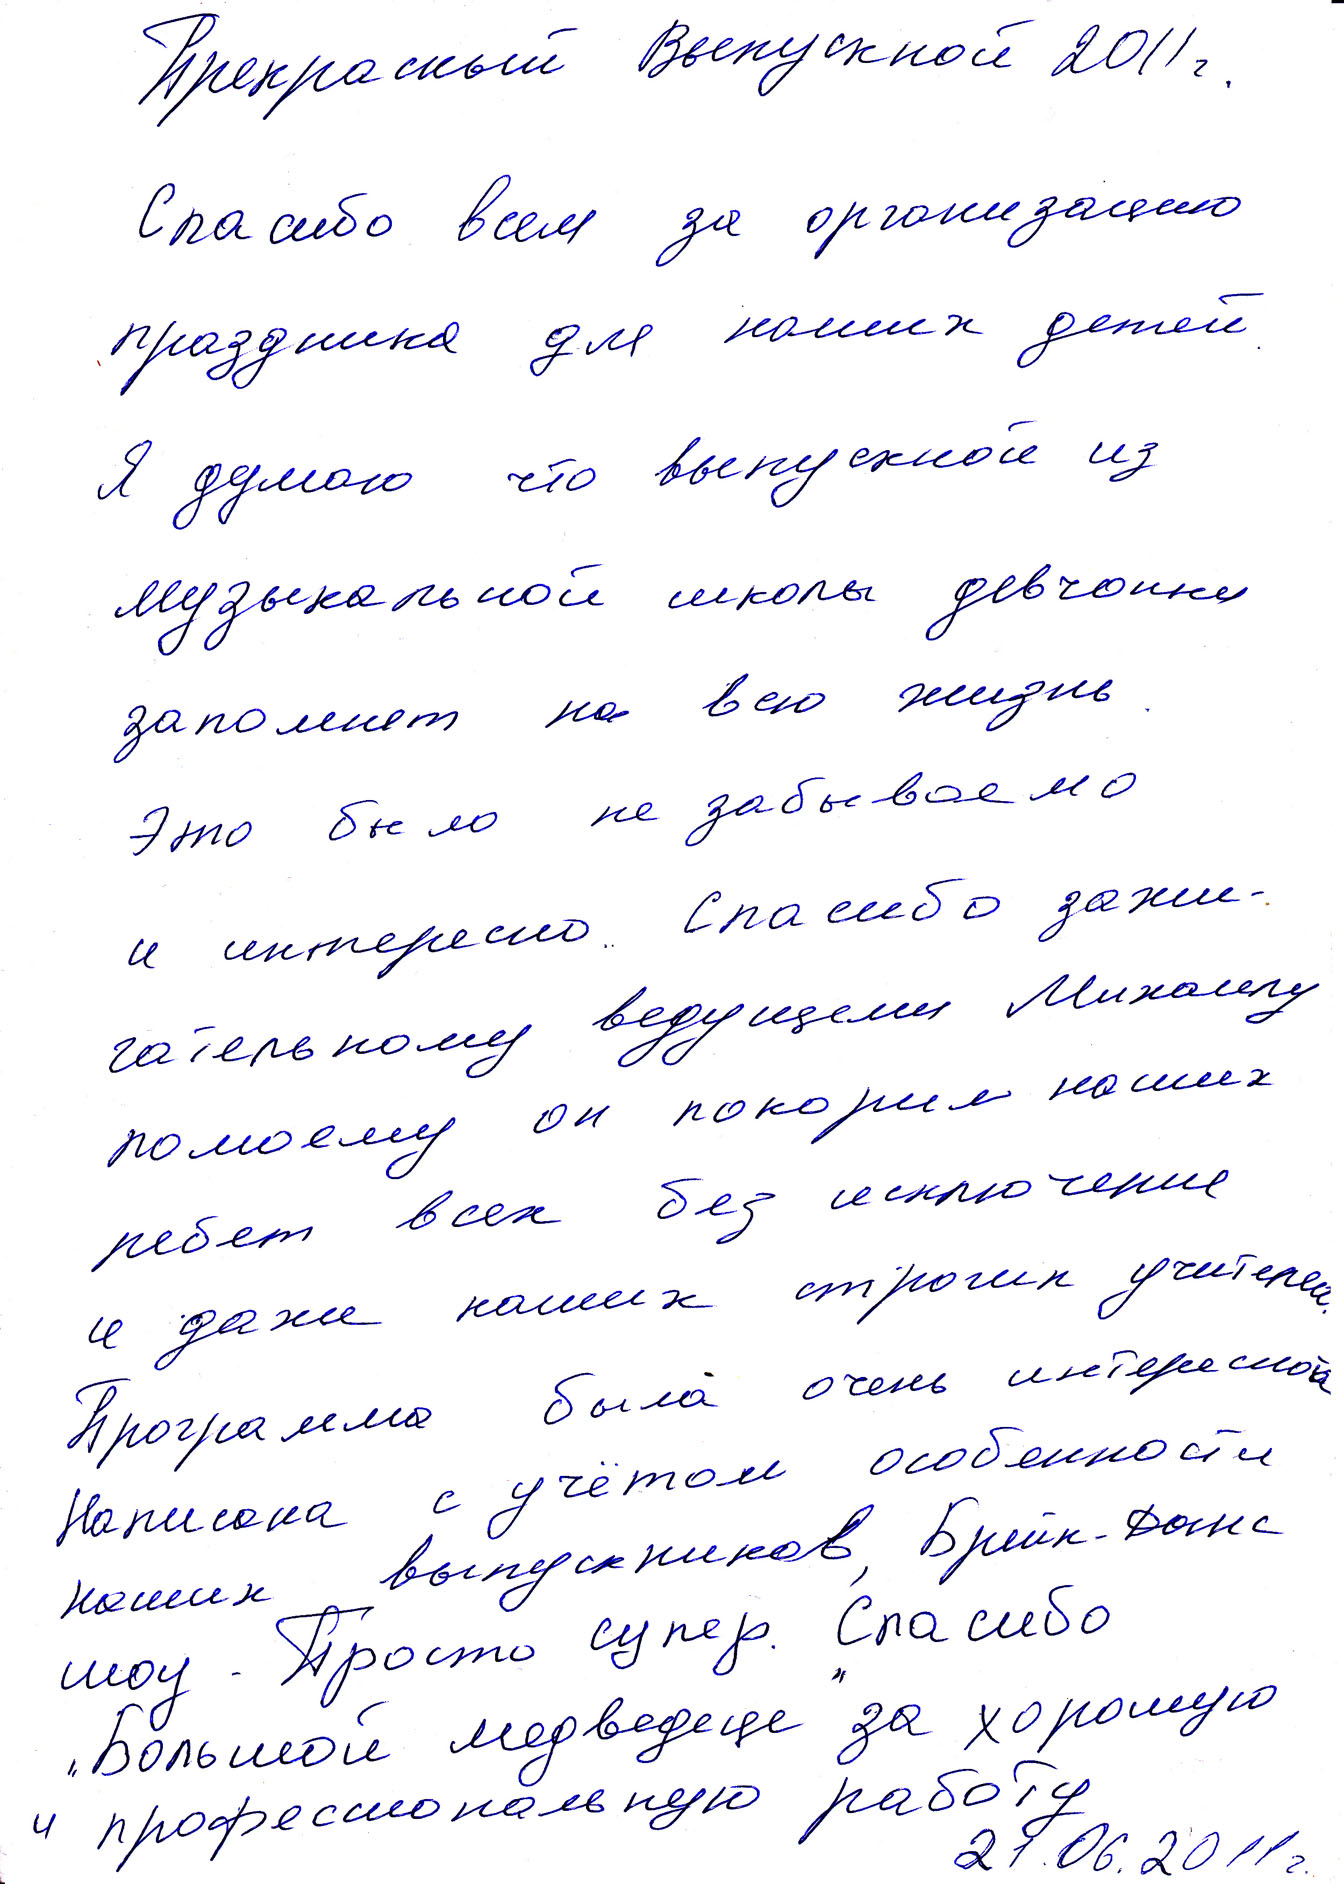 Прекрасный Выпускной 2011г.
Спасибо всем за организацию
праздника для наших детей.
Я думаю что выпускной из
музыкальной школы девчонки
запомнят на всю жизнь.
Это было не забываемо
и интересно.. Спасибо зажи-
гательному ведущему Михаилу
помоему он покорил наших
ребят всех без исключение
и даже наших строгих учителей.
Программа была очень интересной
Написана с учётом особенности
наших выпускников, Брейк-Данс
шоу - Просто супер. Спасибо
"Большой медведеце" за хорошую
и профессиональную работу
21.06.2011г.